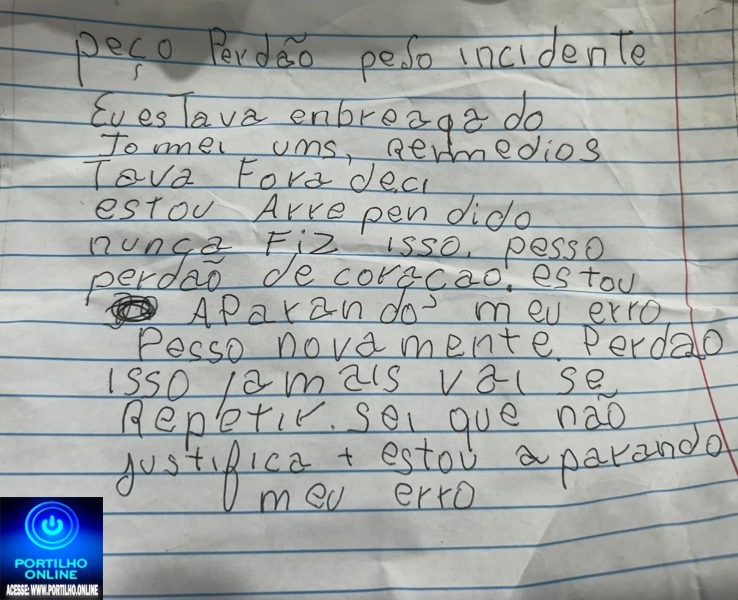 peço Perdão pelo incidente
Eu esTava enbreagado
Tomei ums, Remedios
Tava Fora deci
estou Arrependido
nunca Fiz isso. pesso
perdão de coração. estou
APArando meu erro
Pesso novamente. Perdao
isso jamais vai se
Repetir. sei que não
justifica + estou aparando
meu erro
PORTILHO
ONLINE
ACESSE: WWW.PORTILHO.ONLINE